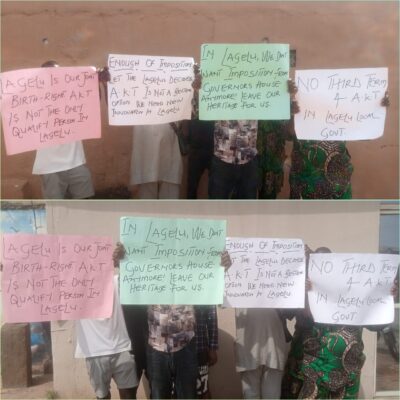 LAGELU IS OUR JOINT
BIRTH-RIGHT A.K.T
IS NOT THE ONLY
QUALIFY PERSON IN
LAGELU.
ENOUGH OF IMPOSITION
LET THE LAGELU DECIDE
A.K.T IS NOT A BETTER
OPTION WE NEED NEW
INNOVATION IN LAGELU
IN LAGELU, WE DON'T
WANT IMPOSITION FROM
GOVERNORS HOUSE
ANYMORE! LEAVE OUR
HERITAGE FOR US.
NO THIRD TERM
4 A.K.T
IN LAGELU LOCAL
GOVT.
LAGELU IS OUR JOINT
BIRTH-RIGHT A.K.T
IS NOT THE ONLY
QUALIFY PERSON IN
LAGELU.
IN LAGELU, WE DON'T
WANT IMPOSITION FROM
GOVERNORS HOUSE
ANYMORE! LEAVE OUR
HERITAGE FOR US.
ENOUGH OF IMPOSITION
LET THE LAGELU DECIDE
A.K.T IS NOT A BETTER
OPTION WE NEED NEW
INNOVATION IN LAGELU
NO THIRD TERM
4 A.K.T
IN LAGELU LOCAL
GOVT.